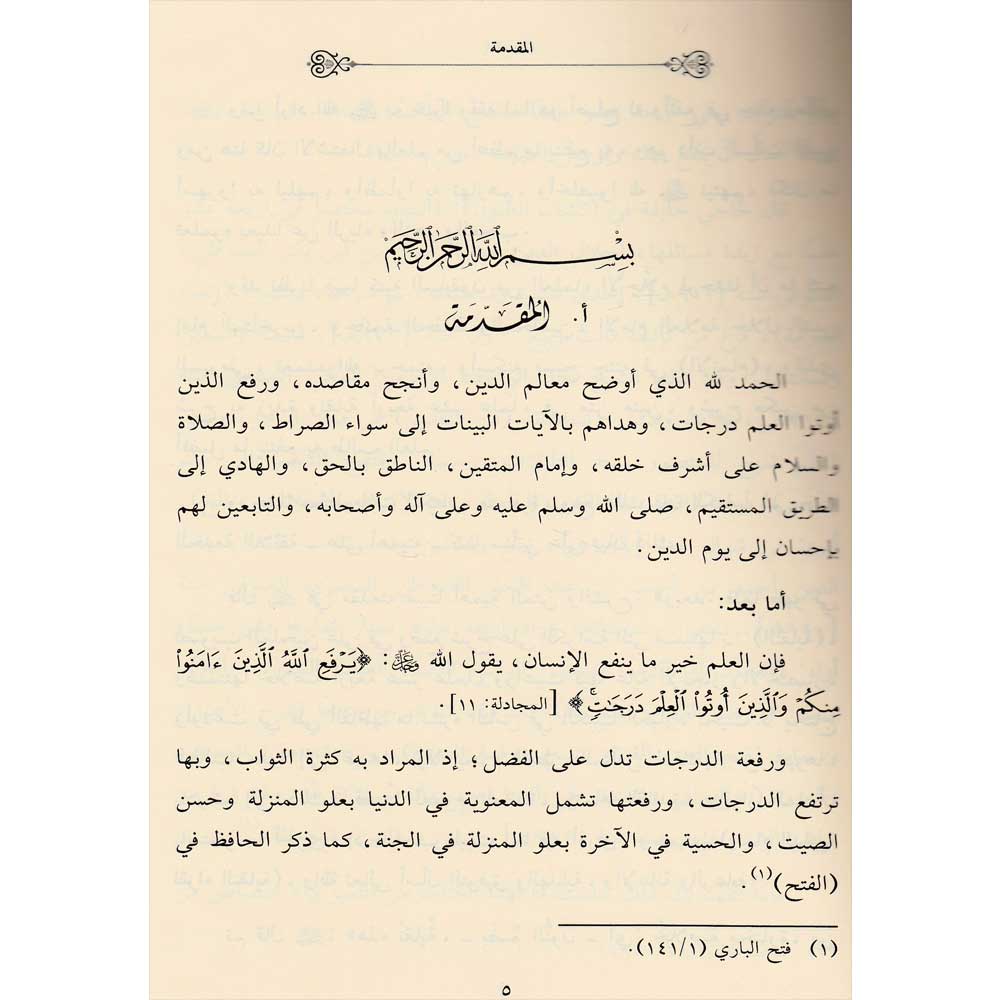 المقدمة
بسم الله الرحمن الرحيم
أ. المقدمة
الحمد لله الذي أوضح معالم الدين، وأنجح مقاصده، ورفع الذين
أوتوا العلم درجات، وهداهم بالآيات البينات إلى سواء الصراط، والصلاة
والسلام على أشرف خلقه، وإمام المتقين، الناطق بالحق، والهادي إلى
الطريق المستقيم، صلى الله وسلم عليه وعلى آله وأصحابه، والتابعين لهم
بإحسان إلى يوم الدين.
أما بعد:
فإن العلم خير ما ينفع الإنسان، يقول الله ﷻ: ﴿يَرْفَعِ اللَّهُ الَّذِينَ ءَامَنُوا
مِنكُمْ وَالَّذِينَ أُوتُوا الْعِلْمَ دَرَجَاتٍ﴾ [المجادلة: ١١].
ورفعة الدرجات تدل على الفضل؛ إذ المراد به كثرة الثواب، وبها
ترتفع الدرجات، ورفعتها تشمل المعنوية في الدنيا بعلو المنزلة وحسن
الصيت، والحسية في الآخرة بعلو المنزلة في الجنة، كما ذكر الحافظ في
(الفتح)(١).
(١) فتح الباري (١/١٤١).
٥